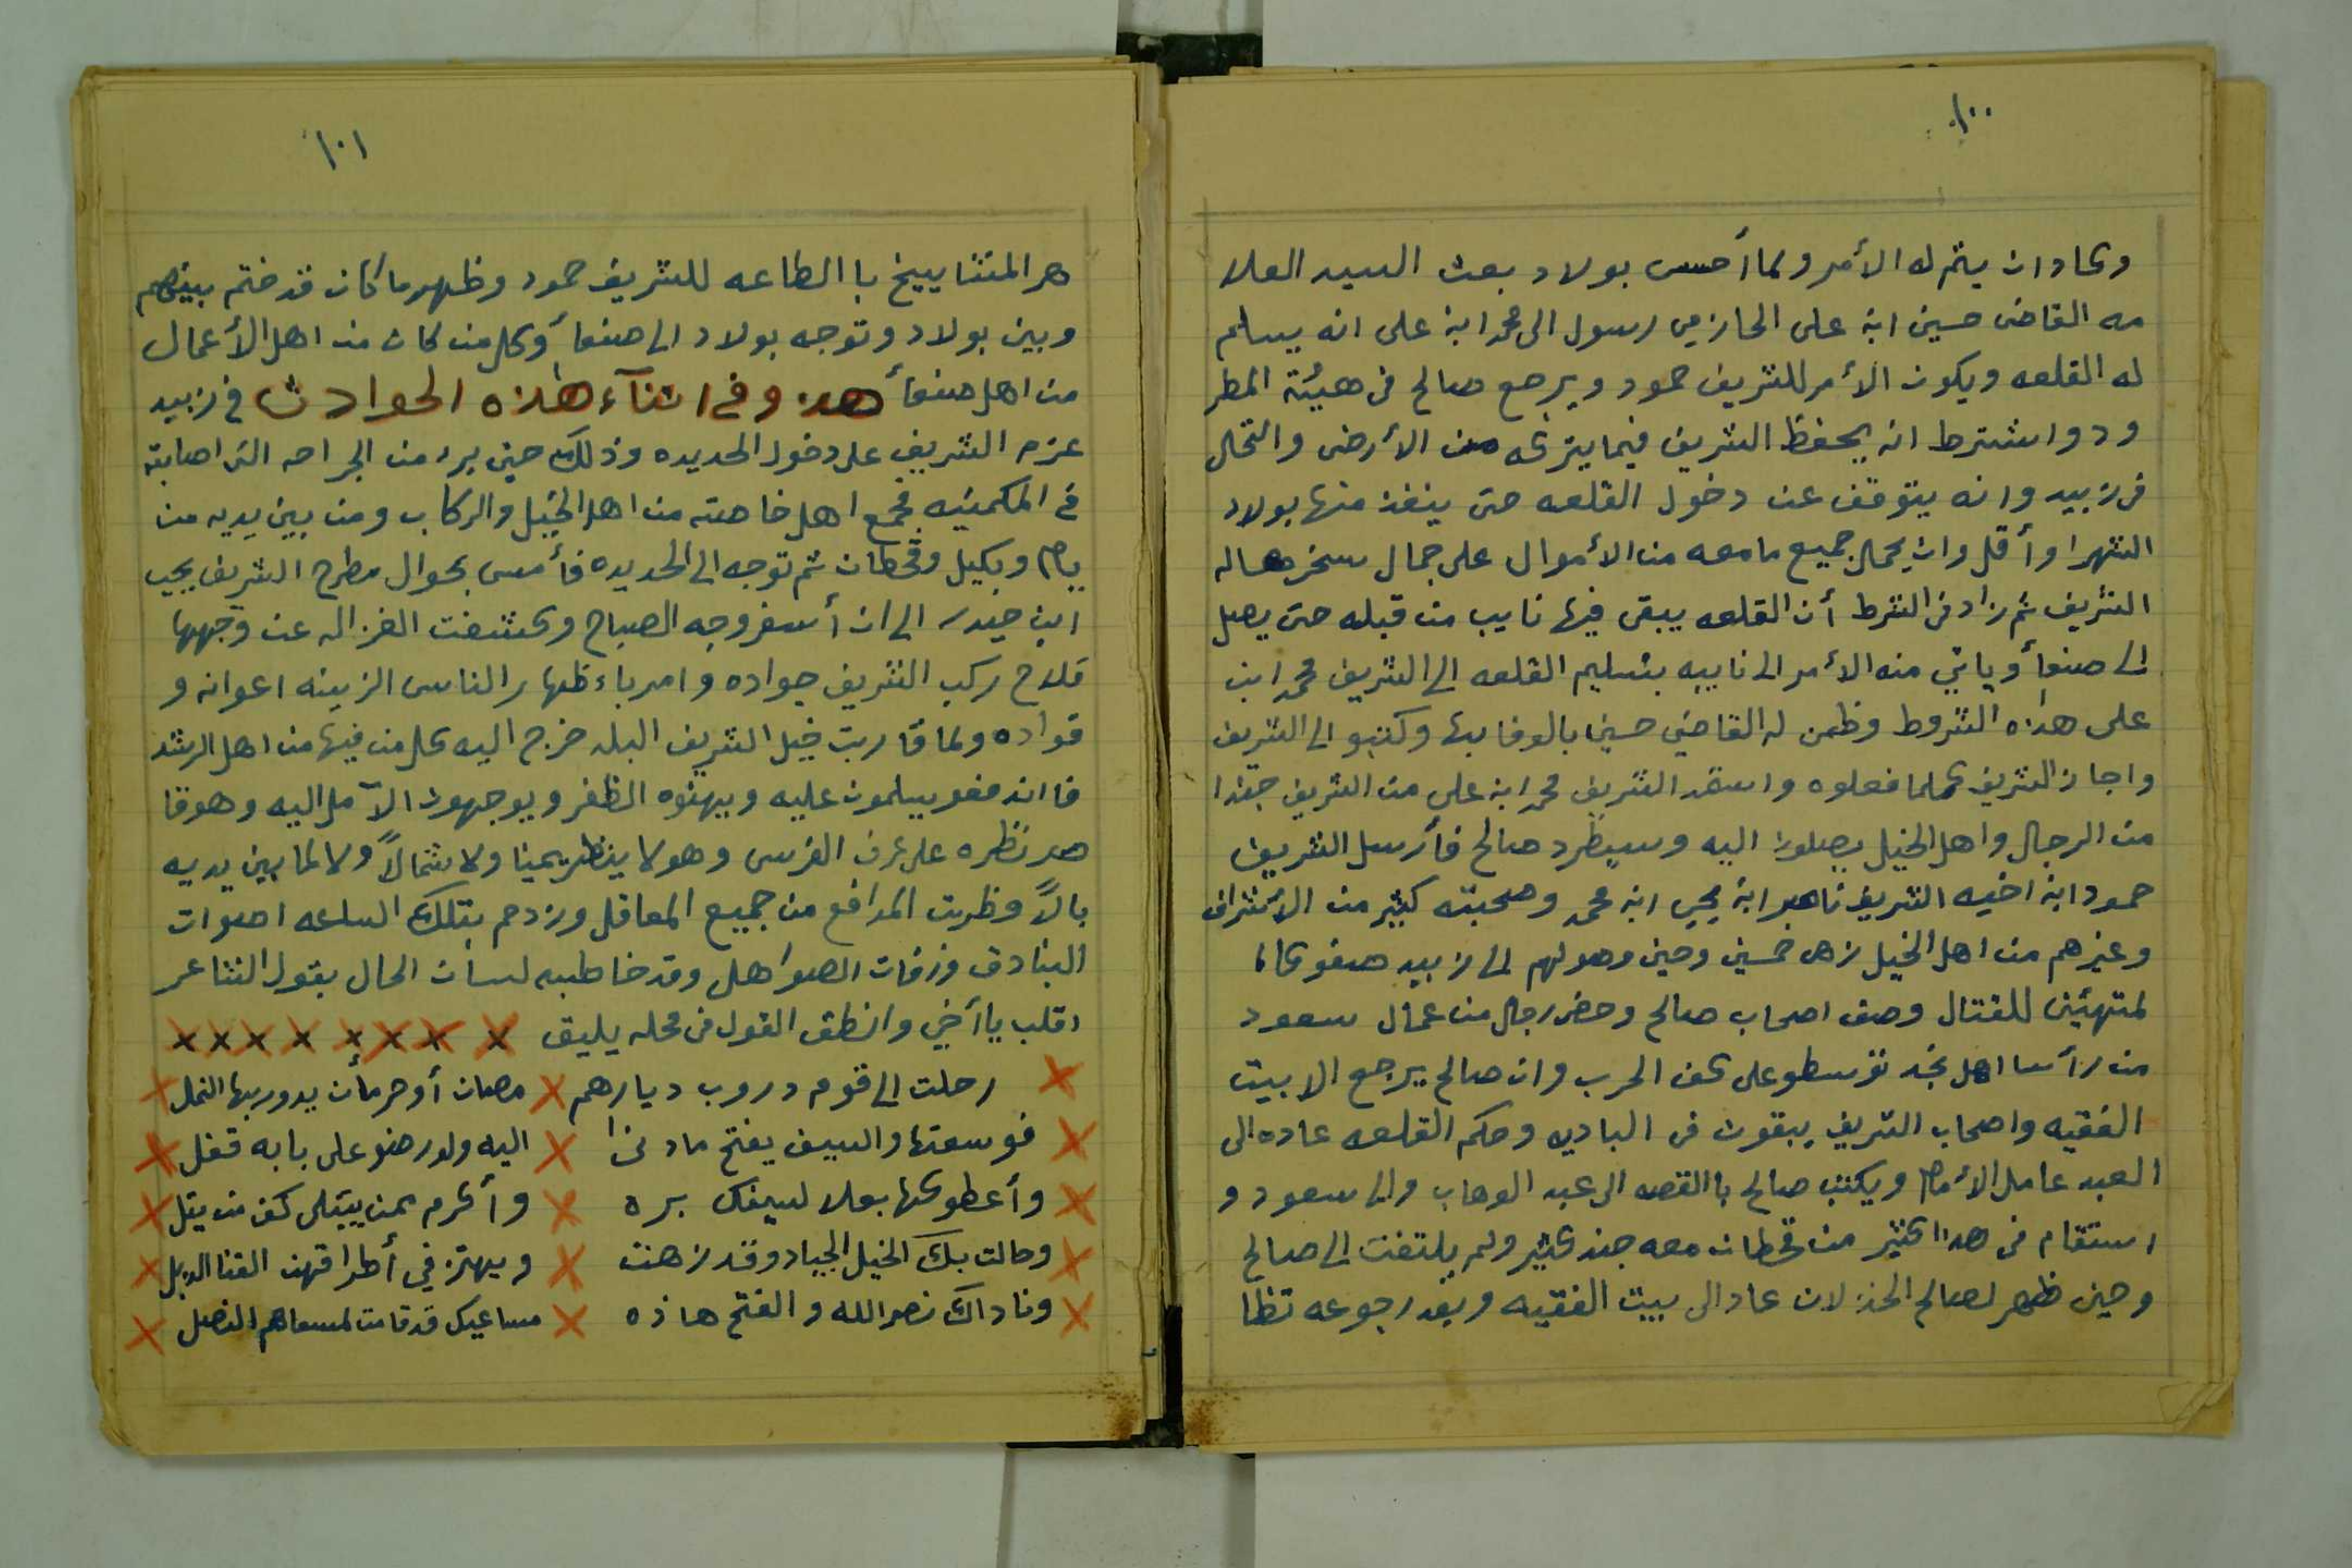 ١٠٠
وكاد ان يتم له الأمر ولما أحس بولاد بعث السيد العلا
مه القاضى حسين ابن على الحازمي رسول الى محمد ابن على انه يسلم
له القلعه ويكون الأمر للشريف حمود ويرجع صالح فى هيئة المطر
ود واشترط انه يحفظ الشريف فيما يتركه من الأرض والنخال
فى زبيد وانه يتوقف عن دخول القلعه حتى ينفذ منها بولاد
الشهر او أقل وان يحمل جميع مامعه من الأموال على جمال سخرها له
الشريف ثم زاد فى الشرط أن القلعه يبقى فيها نايب من قبله حتى يصل
الى صنعأ وياتي منه الأمر الى نايبه بتسليم القلعه الى الشريف محمد ابن
على هاذه الشروط وظمن له القاضي حسين بالوفا بها وكتبو الى الشريف
واجاز الشريف كلما فعلوه واستمد الشريف محمد ابن علي من الشريف جندا
من الرجال واهل الخيل يصلون اليه وسيطرد صالح فأرسل الشريف
حمود ابن اخيه الشريف ناصر ابن يحيى ابن محمد وصحبته كثير من الأشراف
وغيرهم من اهل الخيل زهى خمسين وحين وصولهم الى زبيد صفو
لمتهئين للقتال وصف اصحاب صالح وحضر رجال من عمال سعود
من رأسا اهل نجد توسطو على كف الحرب وان صالح يرجع الا بيت
الفقيه واصحاب الشريف يبقون فى الباديه وحكم القلعه عاده الى
العبد عامل الأمام ويكتب صالح باالقصه الى عبد الوهاب والى سعود و
استقام فى هذا كثير من قحطان معه جند كثير ولم يلتفت الى صالح
وحين ظهر لصالح الخذلان عاد الى بيت الفقيه وبعد رجوعه تظا
١٠١
هر المشاييخ باالطاعه للشريف حمود وظهر ما كان قد ختم بينهم
وبين بولاد وتوجه بولاد الى صنعأ وكل من كان من اهل الأعمال
من اهل صنعأ هذ وفى اثنآء هاذه الحوادث في زبيد
عزم الشريف على دخول الحديده وذلك حين برء من الجراحه التى اصابته
في المكمنيه فجمع اهل خاصته من اهل الخيل والركاب ومن بين يديه من
يام وبكيل وقحطان ثم توجه الى الحديده فأمسى بحوال مطرح الشريف يحيى
ابن حيدر الى ان أسفر وجه الصباح وكشفت الغزاله عن وجهها
قلاح ركب الشريف جواده وامر باءظهار الناس الزينه اعوانه و
قواده ولما قاربت خيل الشريف البلد خرج اليه كل من فيها من اهل الرشد
فااندفعو يسلمون عليه ويهنوه الظفر ويوجهون الآمل اليه وهو قا
صر نظره على عرف الفرس وهو لا ينظر يمينا ولا شمالاً ولا لما بين يديه
بالاً وظربت المدافع من جميع المعاقل وزدحم بتلك الساعه اصوات
البنادق وزفات الصواهل وقد خاطبه لسان الحال بقول الشاعر
اقلب ياأخي وانطق القول فى محله يليق × × × × × × × ×
× رحلت الى قوم دروب ديارهم × مصان أو حرمأن يدور بها النمل ×
× فوسعتها والسيف يفتح مادنى × اليه ولو رصنو على بابه قفل ×
× وأعطوكها بعلا لسيفك بره × وأكرم بمن يبتلى كف من يتل ×
× وحالت بك الخيل الجياد وقد زهت × ويهتز في أطرافهن القنا الدبل ×
× وناداك نصر الله والفتح هاذه × مساعيك قد قامت لمسعاهم النصل ×